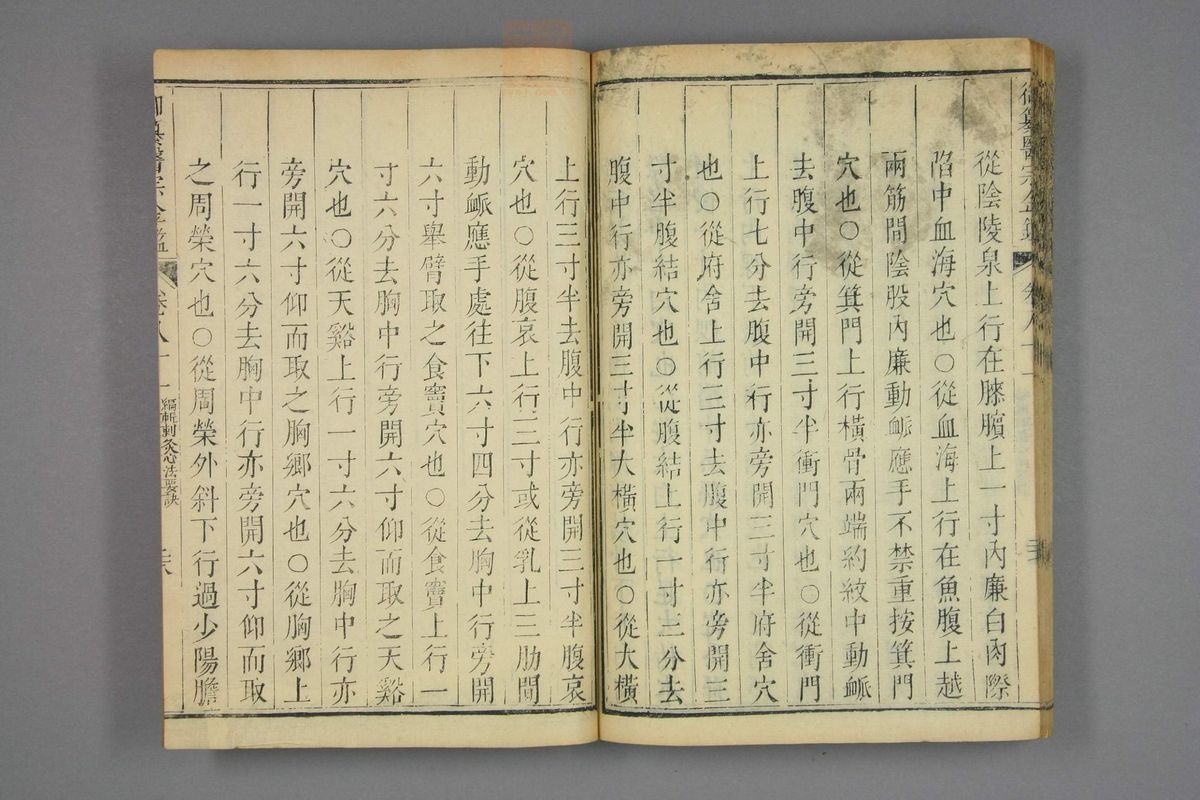 從陰陵泉上行在膝臏上一寸內廉白肉際
陷中血海穴也○從血海上行在魚腹上越
兩筋間陰股內廉動脈應手不禁重按箕門
穴也○從箕門上行橫骨兩端約紋中動脈
去腹中行旁開三寸半衝門穴也○從衝門
上行七分去腹中行亦旁開三寸半府舍穴
也○從府舍上行三寸去腹中行亦旁開三
寸半腹結穴也○從腹結上行一寸三分去
腹中行亦旁開三寸半大橫穴也○從大橫
上行三寸半去腹中行亦旁開三寸半腹哀
穴也○從腹哀上行三寸或從乳上三肋間
動脈應手處往下六寸四分去胸中行旁開
六寸舉臂取之食竇穴也○從食竇上行一
寸六分去胸中行旁開六寸仰而取之天谿
穴也○從天谿上行一寸六分去胸中行亦
旁開六寸仰而取之胸鄉穴也○從胸鄉上
行一寸六分去胸中行亦旁開六寸仰而取
之周榮穴也○從周榮外斜下行過少陽膽
御纂醫宗金鑑
卷八十一
編輯刺灸心法要訣